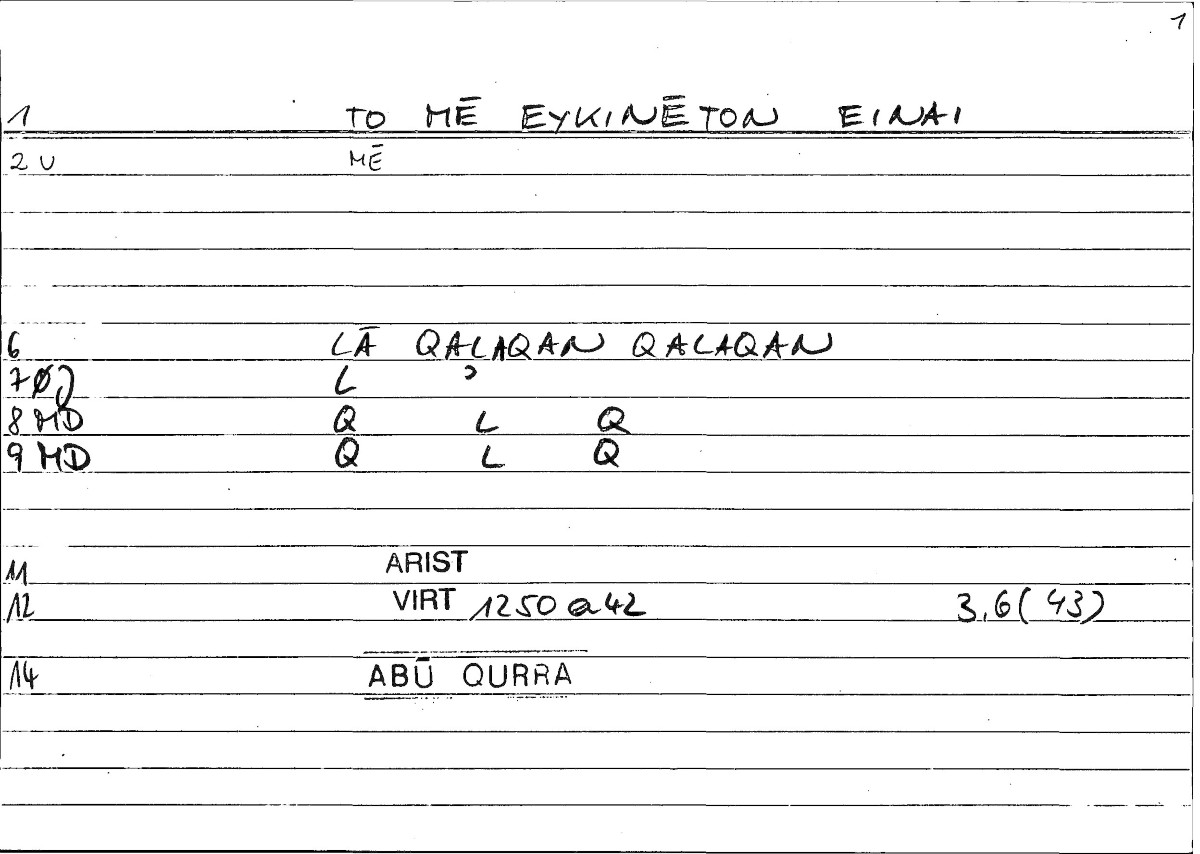 1
1 TO MĒ EYKINĒTON EINAI
2 U MĒ
6 LĀ QALAQAN QALAQAN
7 ØJ L ʾ
8 MD Q L Q
9 MD Q L Q
11 ARIST
12 VIRT 1250 a 42 3.6(43)
14 ABŪ QURRA